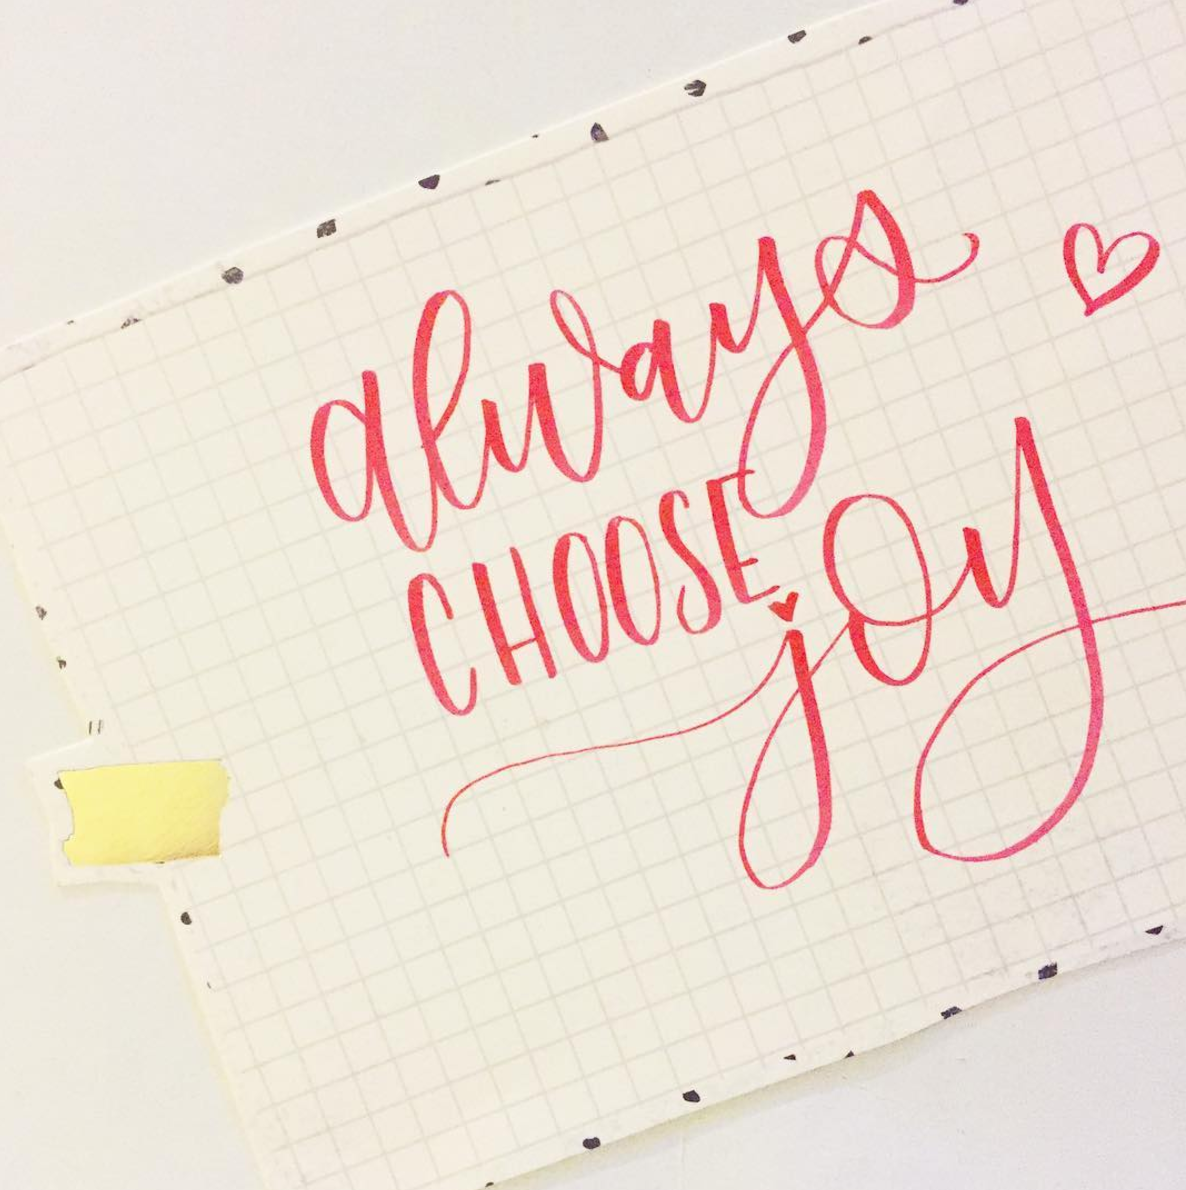 always
CHOOSE
joy